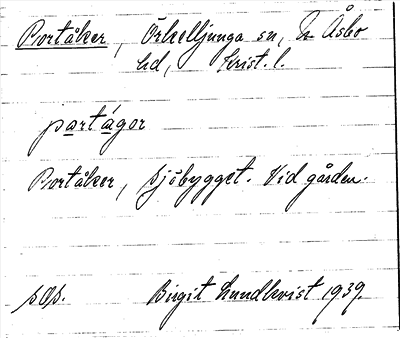 Portåker, Örkelljunga sn, N Åsbo
hd, Krist. l.
partágor
Portåker, Sjöbygget. Vid gården.
sÖp. Birgit Lundkvist 1939.